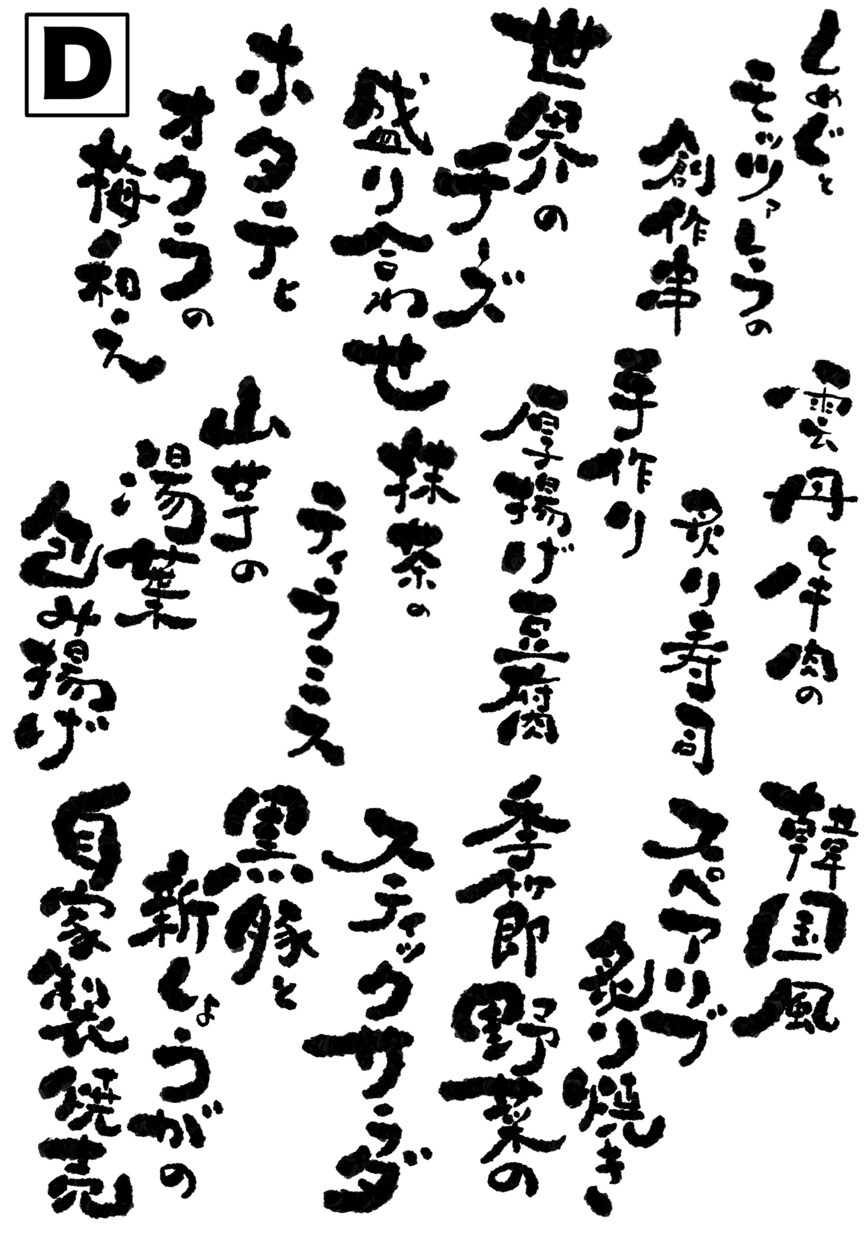 D
しめじと
モッツァレラの
創作串
世界の
チーズ
盛り合わせ
ホタテと
オクラの
梅和え
雲丹と牛肉の
炙り寿司
手作り
厚揚げ豆腐
抹茶の
ティラミス
山芋の
湯葉
包み揚げ
韓国風
スペアリブ
炙り焼き
季節野菜の
スティックサラダ
黒豚と
新しょうがの
自家製焼売